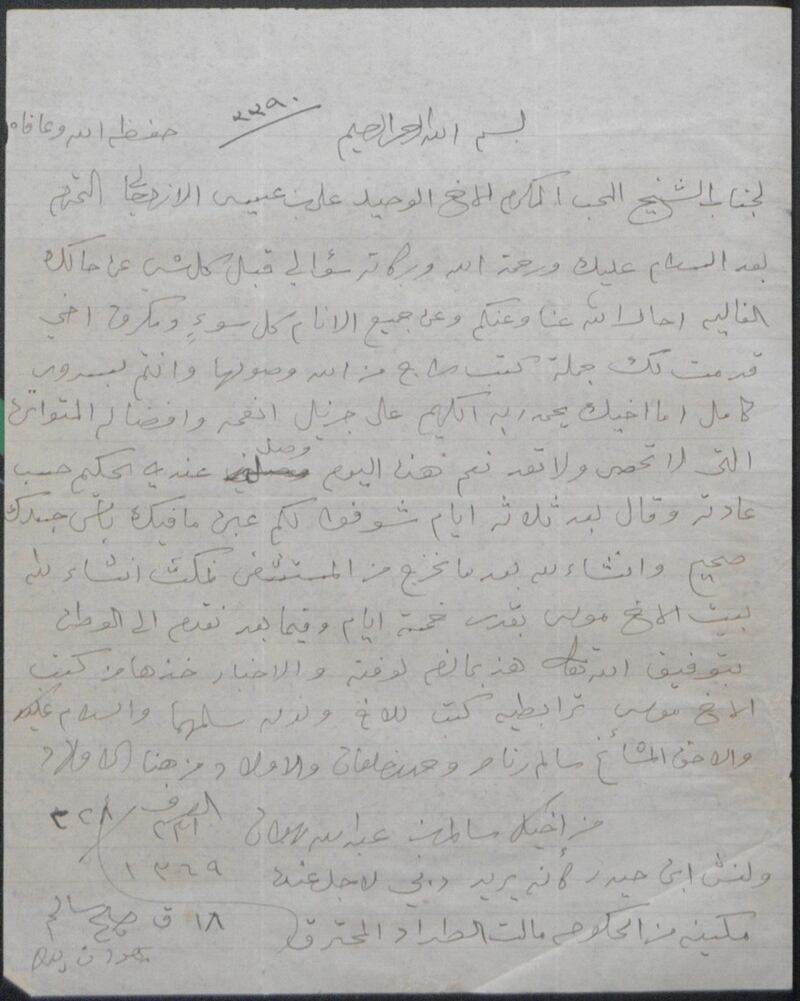 بسم الله الرحمن الرحيم ٢٢٩٠ حفظه الله وعافاه
لجناب الشيخ المحب المكرم الاخ الوحيد علي بن عيسى المحترم
بعد السلام عليك ورحمة الله وبركاته سؤالي قبل كلشي عن حالك
الغاليه احال الله عنا وعنكم وعن جميع الانام كل سوءٍ ومكروه اخي
قدمت لك جملة كتب من الله وصولها وانتم بسرور
كامل اما اخيك يحمد ربه الكريم على جزيل انعمه وافضاله المتواتره
التي لا تحصى ولا تعد نعم هذا اليوم وصل عنديه الحكيم حسب
عادته وقال بعد ثلاثه ايام شوفوا لكم عبره مافيك بأس جسدك
صحيح وانشاء لله بعد ما نخرج من المستشفى نمكث انشاء لله
بيت الاخ موسى بقدر خمسة ايام وفيما بعد نقدم الى الوطن
بتوفيق الله تعالى هذ مالزم لوفته والاخبار خذها من كتب
الاخ موسى ترابطيه كتب للاخ سلمهما والسلام عليكم
والاخ المشائخ سالم وحمد خلفان والاولاد ومن هنا الاولاد
من اخيك سالم بن عبدالله
ولنش ابن حيدر كأنه يريد دبي لاجل
١٣٦٩
مكينه من الحكومه مالت الطراد المحترق ١٨ ق صح سالم